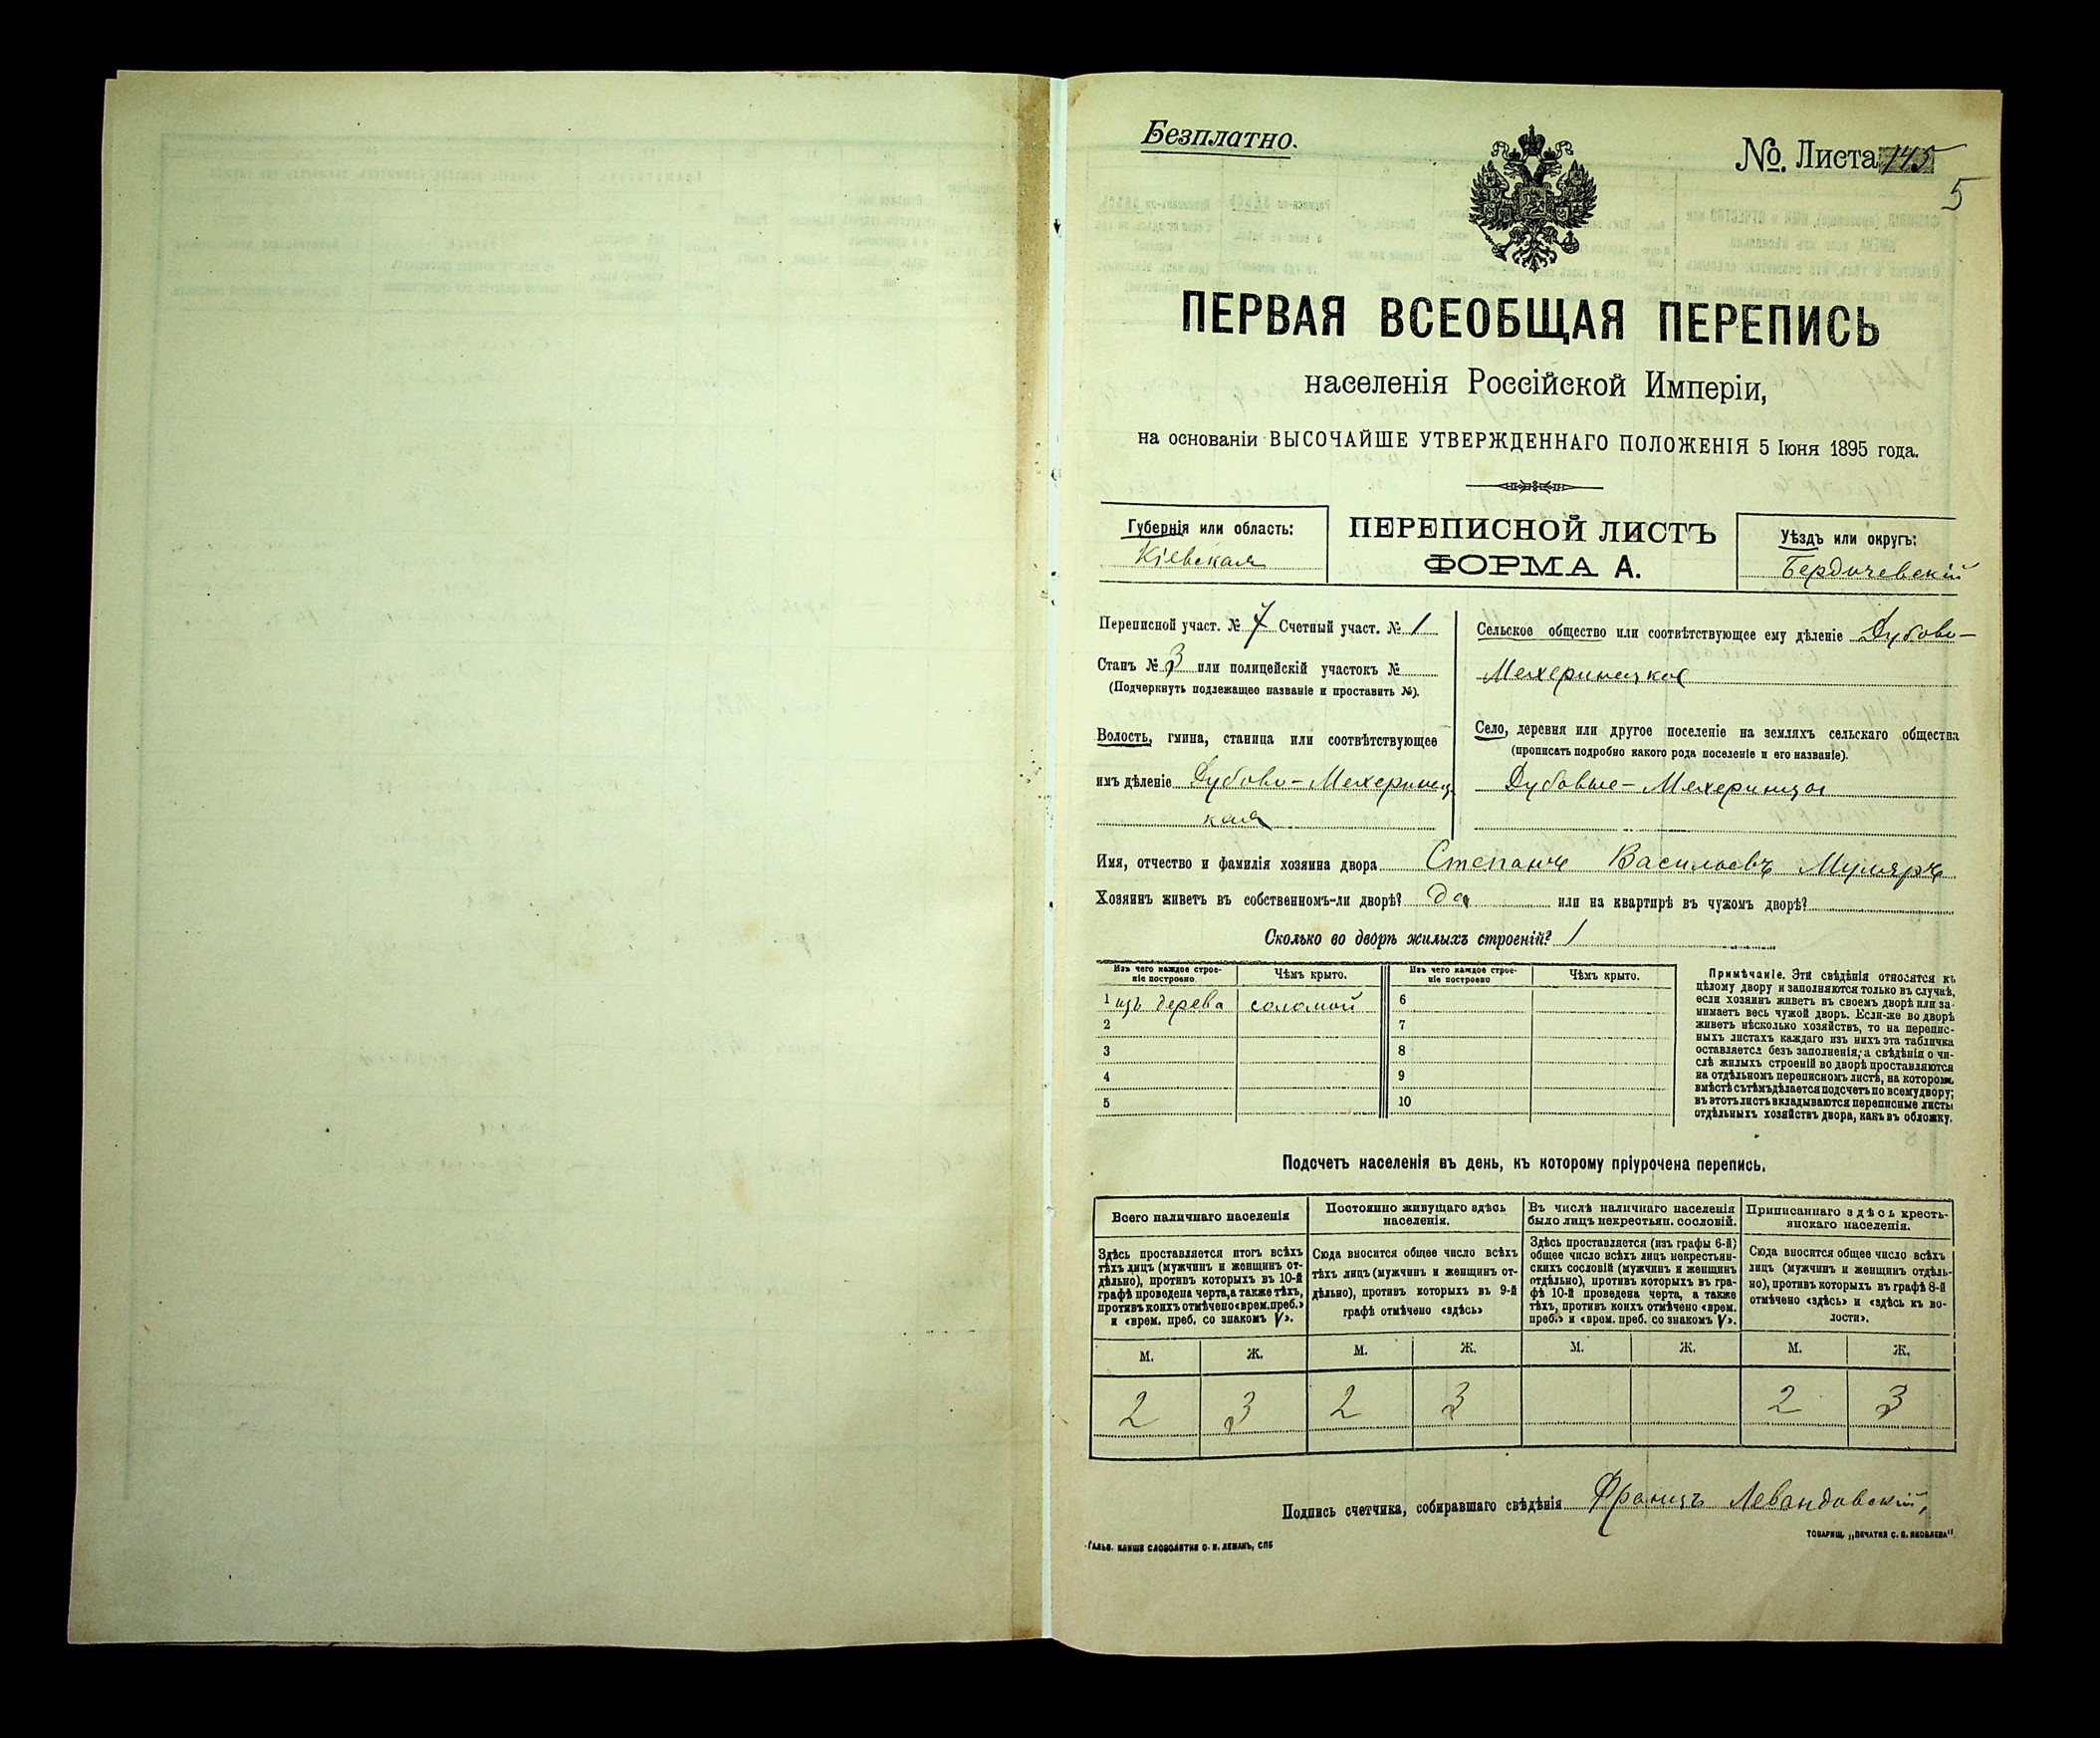 Безплатно.
№. Листа 145
5
ПЕРВАЯ ВСЕОБЩАЯ ПЕРЕПИСЬ
населенія Россійской Имперіи,
на основаніи ВЫСОЧАЙШЕ УТВЕРЖДЕННАГО ПОЛОЖЕНІЯ 5 Іюня 1895 года.
Губернія или область:
Кіевская
ПЕРЕПИСНОЙ ЛИСТЪ
ФОРМА А.
Уѣздъ или округъ:
Бердичевскій
Переписной участ. № 7 Счетный участ. № 1
Станъ № 3 или полицейскій участокъ №
(Подчеркнуть подлежащее названіе и проставить №).
Волость, гмина, станица или соотвѣтствующее
имъ дѣленіе Дубово-Мехеринец
кая
Сельское общество или соотвѣтствующее ему дѣленіе Дубово-
Мехеринецкое
Село, деревня или другое поселеніе на земляхъ сельскаго общества
(прописать подробно какого рода поселеніе и его названіе).
Дубовые-Мехеринцы
Имя, отчество и фамилія хозяина двора Степанъ Васильевъ Муляръ
Хозяинъ живетъ въ собственномъ-ли дворѣ? да или на квартирѣ въ чужомъ дворѣ?
Сколько во дворѣ жилыхъ строеній? 1
Изъ чего каждое строе-
ніе построено
Чѣмъ крыто.
Изъ чего каждое строе-
ніе построено
Чѣмъ крыто.
1 изъ дерева соломой 6
2 7
3 8
4 9
5 10
Примѣчаніе. Эти свѣдѣнія относятся къ
цѣлому двору и заполняются только въ случаѣ,
если хозяинъ живетъ въ своемъ дворѣ или за-
нимаетъ весь чужой дворъ. Если-же во дворѣ
живетъ нѣсколько хозяйствъ, то на перепис-
ныхъ листахъ каждаго изъ нихъ эта табличка
оставляется безъ заполненія; а свѣдѣнія о чи-
слѣ жилыхъ строеній во дворѣ проставляются
на отдѣльномъ переписномъ листѣ, на которомъ
вмѣстѣ съ тѣмъ дѣлается подсчетъ по всему двору;
въ этотъ листъ вкладываются переписные листы
отдѣльныхъ хозяйствъ двора, какъ въ обложку.
Подсчетъ населенія въ день, къ которому пріурочена перепись.
Всего наличнаго населенія
Здѣсь проставляется итогъ всѣхъ
тѣхъ лицъ (мужчинъ и женщинъ от-
дѣльно), противъ которыхъ въ 10-й
графѣ проведена черта, а также тѣхъ,
противъ коихъ отмѣчено «врем. преб.»
и «врем. преб. со знакомъ V».
Постоянно живущаго здѣсь
населенія.
Сюда вносится общее число всѣхъ
тѣхъ лицъ (мужчинъ и женщинъ от-
дѣльно), противъ которыхъ въ 9-й
графѣ отмѣчено «здѣсь»
Въ числѣ наличнаго населенія
было лицъ некрестьян. сословій.
Здѣсь проставляется (изъ графы 6-й)
общее число всѣхъ лицъ некрестьян-
скихъ сословій (мужчинъ и женщинъ
отдѣльно), противъ которыхъ въ гра-
фѣ 10-й проведена черта, а также
тѣхъ, противъ коихъ отмѣчено «врем.
преб.» и «врем. преб. со знакомъ V».
Приписаннаго здѣсь кресть-
янскаго населенія.
Сюда вносится общее число всѣхъ
лицъ (мужчинъ и женщинъ отдѣль-
но), противъ которыхъ въ графѣ 8-й
отмѣчено «здѣсь» и «здѣсь къ во-
лости».
М. Ж. М. Ж. М. Ж. М. Ж.
2 3 2 3 2 3
Подпись счетчика, собиравшаго свѣдѣнія Францъ Левандовскій,
ГАЛЬВ. КЛИШЕ СЛОВОЛИТНИ О. И. ЛЕМАНЪ, СПБ
ТОВАРИЩ. „ПЕЧАТНЯ С. П. ЯКОВЛЕВА"